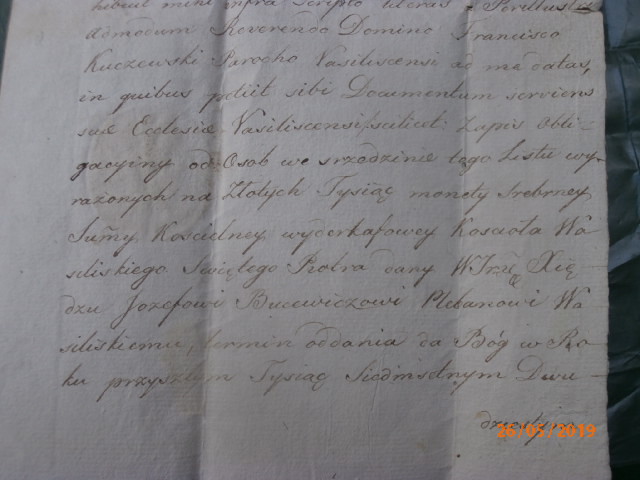 hibuit mihi infra scripto literas a Perillustri
Admodum Reverendo Domino Francisco
Kuczewski Parocho Vasiliscensi ad me datas,
in quibus petiit sibi Documentum serviens
suæ Ecclesiæ Vasiliscensi, scilicet: Zapis obli-
gacyiny od Osob we srzodzinie tego Listu wy-
rażonych na Złotych Tysiąc monety Srebrney
Sum̃y Kościelney wyderkafowey Kościoła Wa-
siliskiego Swiętego Piotra dany WJmć Xię-
dzu Jozefowi Bucewiczowi Plebanowi Wa-
siliskiemu, termin oddania da Bóg w Ro-
ku przyszłym Tysiąc Siedmsetnym Dwu-
dziestym
26/05/2019